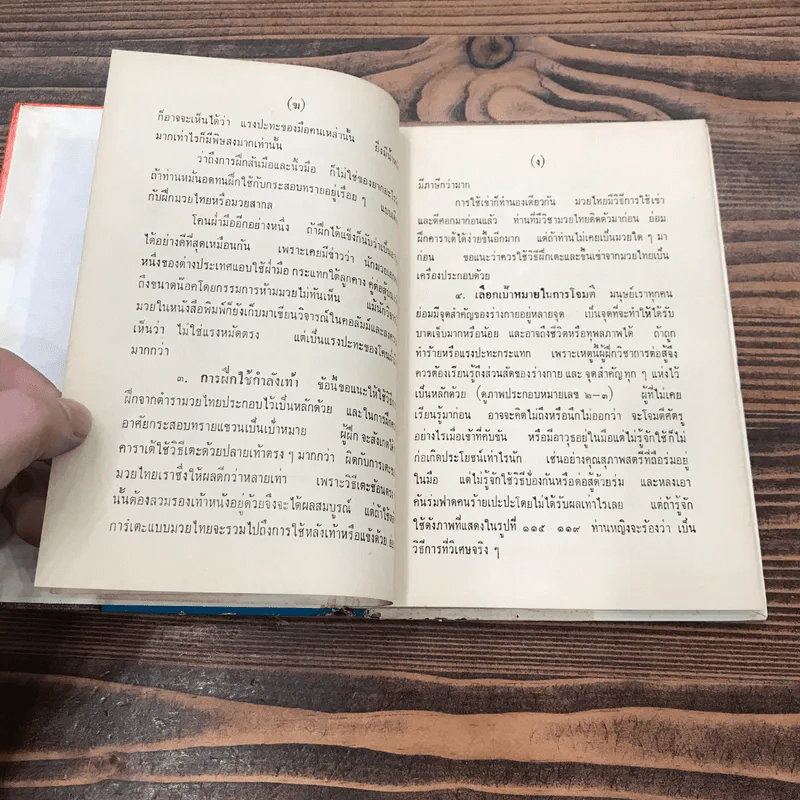 (ฆ)
ก็อาจจะเห็นได้ว่า แรงปะทะของมือคนเหล่านั้น ยิ่งมีน้ำ
มากเท่าไรก็มีพิษสงมากเท่านั้น
ว่าถึงการฝึกสันมือและนิ้วมือ ก็ไม่ใช่ของยาก
ถ้าท่านหมั่นอดทนฝึกใช้กับกระสอบทรายอยู่เรื่อย ๆ
กับฝึกมวยไทยหรือมวยสากล
โคนฝ่ามืออีกอย่างหนึ่ง ถ้าฝึกได้แข็งก็นับว่าเป็น
ได้อย่างดีที่สุดเหมือนกัน เพราะเคยมีข่าวว่า
หนึ่งของต่างประเทศแอบใช้ฝ่ามือ กระแทกใต้ลูกคาง
ถึงขนาดน๊อคโดยกรรมการห้ามมวยไม่ทันเห็น
มวยในหนังสือพิมพ์ก็ยังเก็บมาเขียนวิจารณ์ในคอลัมน์
เห็นว่า ไม่ใช่แรงหมัดตรง แต่เป็นแรงปะทะของโคน
มากกว่า
๓. การฝึกใช้กำลังเท้า ข้อนี้ขอแนะให้ใช้
ฝึกจากตำรามวยไทยประกอบไว้เป็นหลักด้วย และในการฝึก
อาศัยกระสอบทรายแขวนเป็นเป้าหมาย ผู้ฝึกจะสังเกต
คาราเต้ใช้วิธีเตะด้วยปลายเท้าตรง ๆ มากกว่า ผิดกับการเตะ
มวยไทยเราซึ่งให้ผลดีกว่าหลายเท่า เพราะวิธีเตะช้อนตรง
นั้นต้องสวมรองเท้าหนังอยู่ด้วยจึงจะได้ผลสมบูรณ์ แต่ถ้าใช้
การ์เตะแบบมวยไทยจะรวมไปถึงการใช้หลังเท้าหรือแข้งด้วย
(ง)
มีภาษีกว่ามาก
การใช้เข่าก็ทำนองเดียวกัน มวยไทยมีวิธีการใช้เข่า
และตีศอกมาก่อนแล้ว ท่านที่มีวิชามวยไทยติดตัวมาก่อน ย่อม
ฝึกคาราเต้ได้ง่ายขึ้นอีกมาก แต่ถ้าท่านไม่เคยเป็นมวยใด ๆ มา
ก่อน ขอแนะว่าควรใช้วิธีฝึกเตะและขึ้นเข่าจากมวยไทยเป็น
เครื่องประกอบด้วย
๔. เลือกเป้าหมายในการโจมตี มนุษย์เราทุกคน
ย่อมมีจุดสำคัญของร่างกายอยู่หลายจุด เป็นจุดที่จะทำให้ได้รับ
บาดเจ็บมากหรือน้อย และอาจถึงชีวิตหรือทุพลภาพได้ ถ้าถูก
ทำร้ายหรือแรงปะทะกระแทก เพราะเหตุนี้ผู้ฝึกวิชาการต่อสู้จึง
ควรต้องเรียนรู้ถึงส่วนสัดของร่างกาย และ จุดสำคัญทุก ๆ แห่งไว้
เป็นหลักด้วย (ดูภาพประกอบหมายเลข ๒-๓) ผู้ที่ไม่เคย
เรียนรู้มาก่อน อาจจะคิดไม่ถึงหรือนึกไม่ออกว่า จะโจมตีศัตรู
อย่างไรเมื่อเข้าที่คับขัน หรือมีอาวุธอยู่ในมือแต่ไม่รู้จักใช้ก็ไม่
ก่อเกิดประโยชน์เท่าไรนัก เช่นอย่างคุณสุภาพสตรีที่ถือร่มอยู่
ในมือ แต่ไม่รู้จักใช้วิธีป้องกันหรือต่อสู้ด้วยร่ม และหลงเอา
คันร่มฟาดคนร้ายเปะปะโดยไม่ได้รับผลเท่าไรเลย แต่ถ้ารู้จัก
ใช้ดังภาพที่แสดงในรูปที่ ๑๑๕ ๑๑๙ ท่านหญิงจะร้องว่า เป็น
วิธีการที่วิเศษจริง ๆ